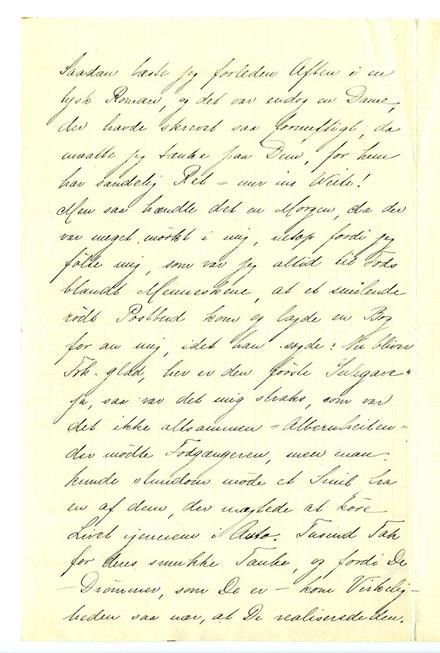 Saadan læste jeg forleden Aften i en
tysk Roman, og det var endog en Dame,
der havde skrevet saa fornuftigt, da
maatte jeg tænke paa Dem, for hun
har sandelig Ret = nur ins Weite!
Men saa hændte det en Morgen, da der
var meget mörkt i mig, netop fordi jeg
fölte mig, som var jeg altid til Fods
blandt Menneskene, at et smilende
rödt Postbud kom og lagde en Bog
for an mig, idet han sagde: Nu bliver
Frk. glad, her er den förste Julegave"
Ja, saa var det mig straks, som var
det ikke allsammen = Albernheiten =
der mödte Fodgangeren, men man
kunde stundom möde et Smil fra
en af dem, der mægtede at köre
Livet igennem i Auto. Tusind Tak
for deres smukke Tanke, og fordi De
– Drömmer, som De er – kom Virkelig-
heden saa nær, at De realiserede den.